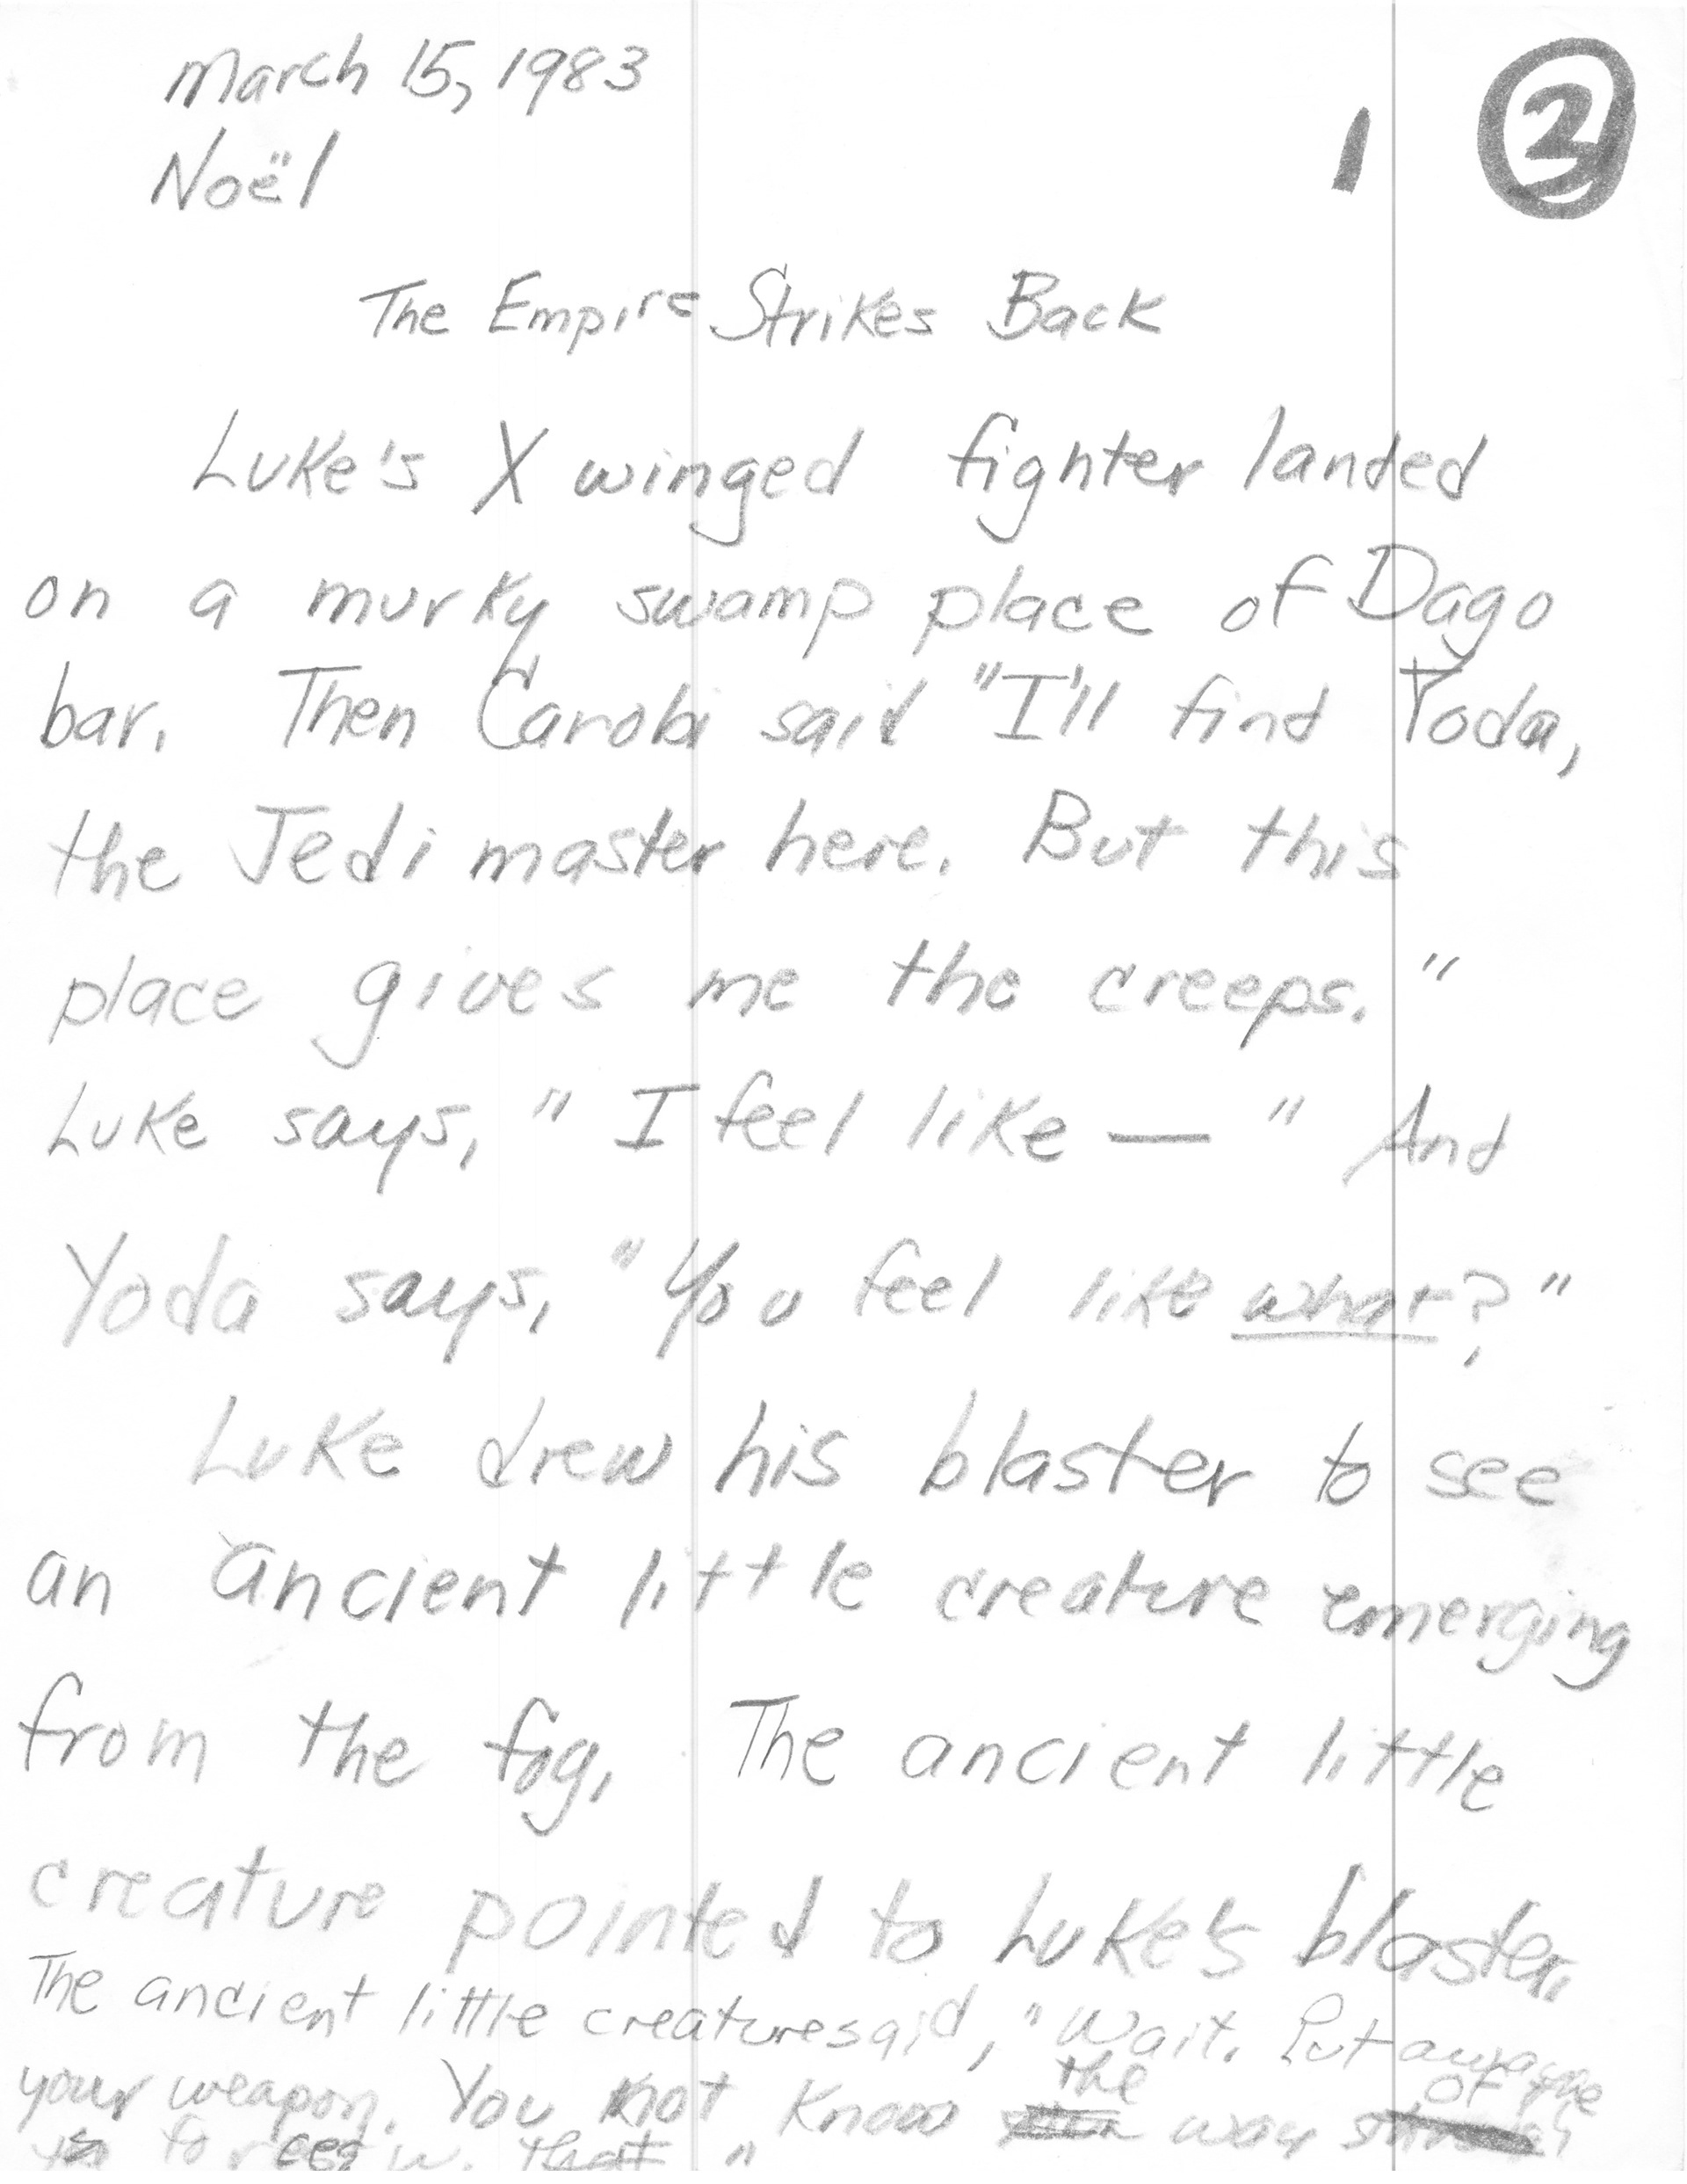 March 15, 1983
Noël
1 2
The Empire Strikes Back
Luke's X winged fighter landed
on a murky swamp place of Dago
bar. Then Carobi said "I'll find Yoda,
the Jedi master here. But this
place gives me the creeps."
Luke says, "I feel like — " And
Yoda says, "You feel like what?"
Luke drew his blaster to see
an ancient little creature emerging
from the fog. The ancient little
creature pointed to Luke's blaster.
The ancient little creature said, "Wait. Put
your weapon. You not know the way of the